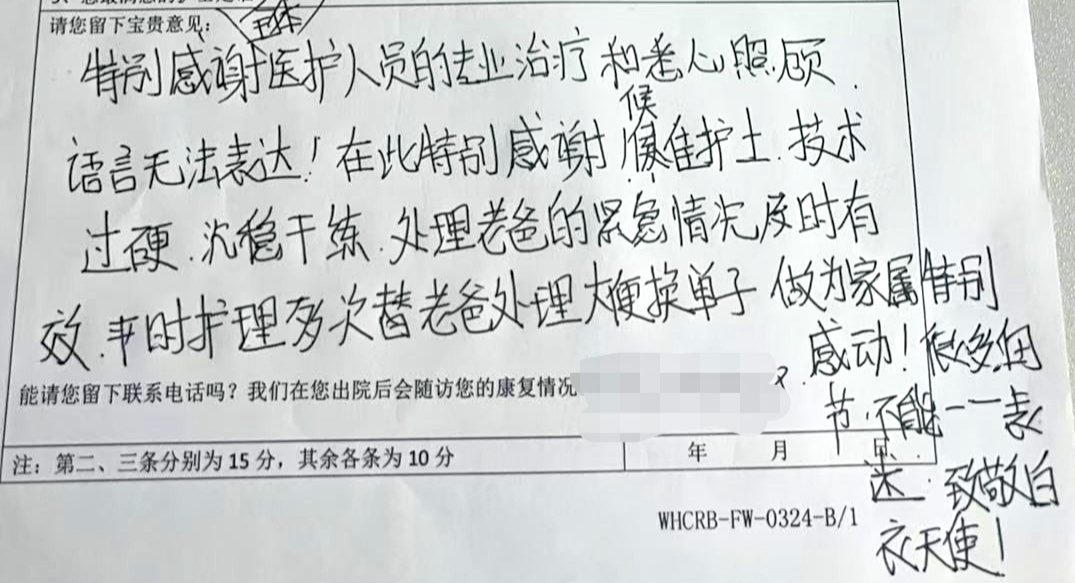 请您留下宝贵意见：
特别感谢医护人员的专业治疗和悉心照顾.
语言无法表达！在此特别感谢候佳护士.技术
过硬.沉稳干练.处理老爸的紧急情况及时有
效.平时护理多次替老爸处理大便换单子 做为家属特别
感动！很多细
节.不能一一表
述.致敬白
衣天使！
能请您留下联系电话吗？我们在您出院后会随访您的康复情况
年 月 日
注：第二、三条分别为15分，其余各条为10分
WHCRB-FW-0324-B/1